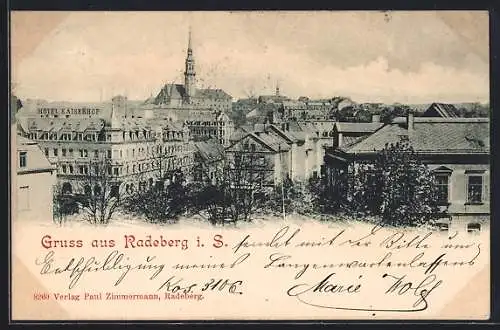 HÔTEL KAISERHOF
Gruss aus Radeberg i. S. sendet mit der Bitte um
Entschuldigung meines Langenwartenlassens
Marie Wolf
8260 Verlag Paul Zimmermann, Radeberg.